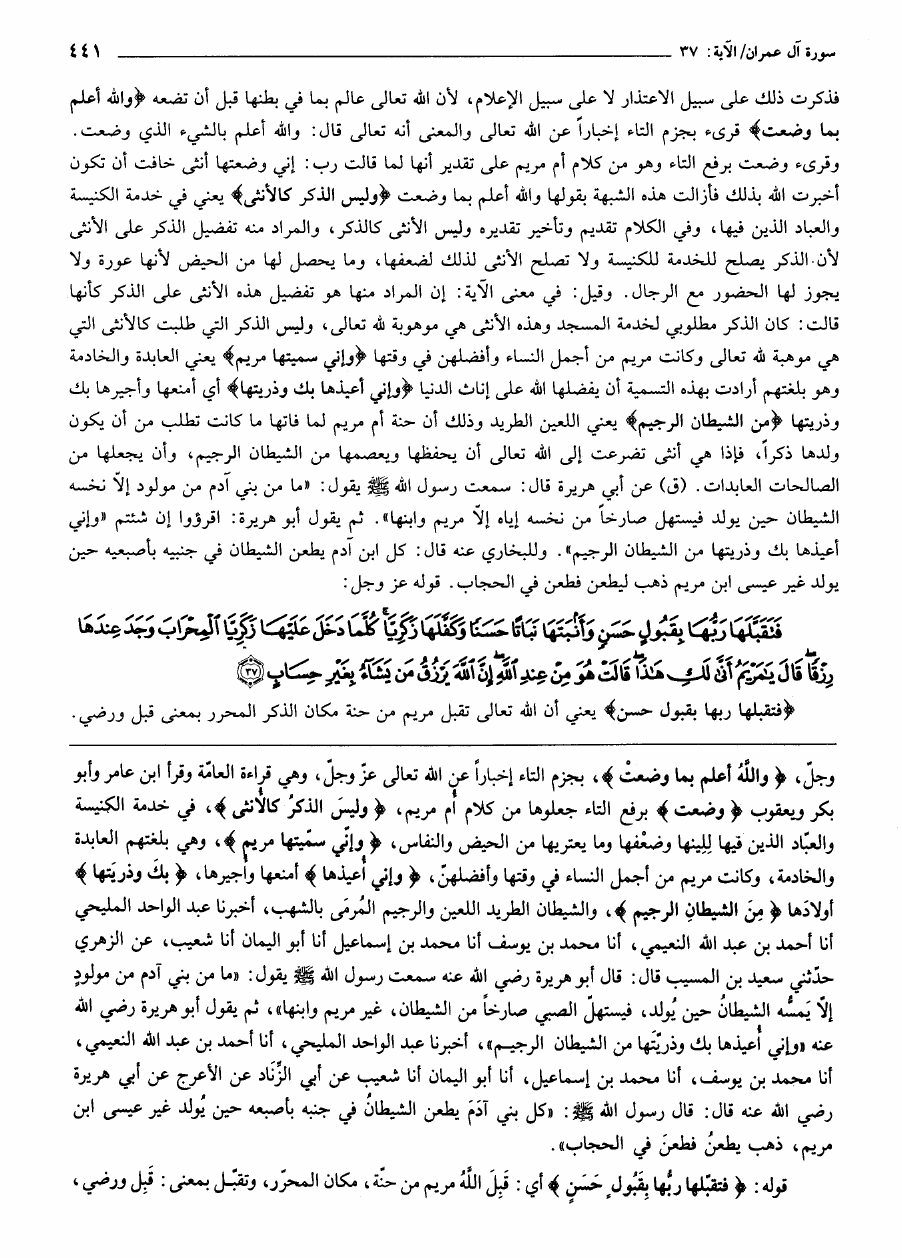 سورة آل عمران/ الآية: ٣٧ ٤٤١
فذكرت ذلك على سبيل الاعتذار لا على سبيل الإعلام، لأن الله تعالى عالم بما في بطنها قبل أن تضعه ﴿والله أعلم
بما وضعت﴾ قرىء بجزم التاء إخباراً عن الله تعالى والمعنى أنه تعالى قال: والله أعلم بالشيء الذي وضعت.
وقرىء وضعت برفع التاء وهو من كلام أم مريم على تقدير أنها لما قالت رب: إني وضعتها أنثى خافت أن تكون
أخبرت الله بذلك فأزالت هذه الشبهة بقولها والله أعلم بما وضعت ﴿وليس الذكر كالأنثى﴾ يعني في خدمة الكنيسة
والعباد الذين فيها، وفي الكلام تقديم وتأخير تقديره وليس الأنثى كالذكر، والمراد منه تفضيل الذكر على الأنثى
لأن الذكر يصلح للخدمة للكنيسة ولا تصلح الأنثى لذلك لضعفها، وما يحصل لها من الحيض لأنها عورة ولا
يجوز لها الحضور مع الرجال. وقيل: في معنى الآية: إن المراد منها هو تفضيل هذه الأنثى على الذكر كأنها
قالت: كان الذكر مطلوبي لخدمة المسجد وهذه الأنثى هي موهوبة لله تعالى، وليس الذكر التي طلبت كالأنثى التي
هي موهبة لله تعالى وكانت مريم من أجمل النساء وأفضلهن في وقتها ﴿وإني سميتها مريم﴾ يعني العابدة والخادمة
وهو بلغتهم أرادت بهذه التسمية أن يفضلها الله على إناث الدنيا ﴿وإني أعيذها بك وذريتها﴾ أي أمنعها وأجيرها بك
وذريتها ﴿من الشيطان الرجيم﴾ يعني اللعين الطريد وذلك أن حنة أم مريم لما فاتها ما كانت تطلب من أن يكون
ولدها ذكراً، فإذا هي أنثى تضرعت إلى الله تعالى أن يحفظها ويعصمها من الشيطان الرجيم، وأن يجعلها من
الصالحات العابدات. (ق) عن أبي هريرة قال: سمعت رسول الله ﷺ يقول: «ما من بني آدم من مولود إلاّ نخسه
الشيطان حين يولد فيستهل صارخاً من نخسه إياه إلاّ مريم وابنها». ثم يقول أبو هريرة: اقرؤوا إن شئتم «وإني
أعيذها بك وذريتها من الشيطان الرجيم». وللبخاري عنه قال: كل ابن آدم يطعن الشيطان في جنبيه بأصبعيه حين
يولد غير عيسى ابن مريم ذهب ليطعن فطعن في الحجاب. قوله عز وجل:
فَتَقَبَّلَهَا رَبُّهَا بِقَبُولٍ حَسَنٍ وَأَنۢبَتَهَا نَبَاتًا حَسَنًا وَكَفَّلَهَا زَكَرِيَّاۖ كُلَّمَا دَخَلَ عَلَيْهَا زَكَرِيَّا ٱلْمِحْرَابَ وَجَدَ عِندَهَا
رِزْقًاۖ قَالَ يَٰمَرْيَمُ أَنَّىٰ لَكِ هَٰذَاۖ قَالَتْ هُوَ مِنْ عِندِ ٱللَّهِۖ إِنَّ ٱللَّهَ يَرْزُقُ مَن يَشَآءُ بِغَيْرِ حِسَابٍ ٣٧
﴿فتقبلها ربها بقبول حسن﴾ يعني أن الله تعالى تقبل مريم من حنة مكان الذكر المحرر بمعنى قبل ورضي.
وجلّ، ﴿واللَّهُ أعلم بما وضعتْ﴾، بجزم التاء إخباراً عن الله تعالى عزّ وجلّ، وهي قراءة العامّة وقرأ ابن عامر وأبو
بكر ويعقوب ﴿وضعت﴾ برفع التاء جعلوها من كلام أم مريم، ﴿وليسَ الذكرُ كالأنثى﴾، في خدمة الكنيسة
والعبّاد الذين فيها لِلِينها وضعْفها وما يعتريها من الحيض والنفاس، ﴿وإنّي سمّيتها مريم﴾، وهي بلغتهم العابدة
والخادمة، وكانت مريم من أجمل النساء في وقتها وأفضلهنّ، ﴿وإني أُعيذها﴾ أمنعها وأُجيرها، ﴿بكَ وذريَتها﴾
أولادَها ﴿مِنَ الشيطانِ الرجيم﴾، والشيطان الطريد اللعين والرجيم المُرمَى بالشهب، أخبرنا عبد الواحد المليحي
أنا أحمد بن عبد الله النعيمي، أنا محمد بن يوسف أنا محمد بن إسماعيل أنا أبو اليمان أنا شعيب، عن الزهري
حدّثني سعيد بن المسيب قال: قال أبو هريرة رضي الله عنه سمعت رسول الله ﷺ يقول: «ما من بني آدم من مولودٍ
إلاّ يَمسُّه الشيطانُ حين يُولد، فيستهلّ الصبي صارخاً من الشيطان، غير مريم وابنها»، ثم يقول أبو هريرة رضي الله
عنه «وإني أُعيذها بك وذريّتَها من الشيطان الرجيم»، أخبرنا عبد الواحد المليحي، أنا أحمد بن عبد الله النعيمي،
أنا محمد بن يوسف، أنا محمد بن إسماعيل، أنا أبو اليمان أنا شعيب عن أبي الزِّنَاد عن الأعرج عن أبي هريرة
رضي الله عنه قال: قال رسول الله ﷺ: «كل بني آدَمَ يطعن الشيطانُ في جنبه بأصبعه حين يُولد غير عيسى ابن
مريم، ذهب يطعنُ فطعنَ في الحجاب».
قوله: ﴿فتقبّلها ربُّها بِقَبُولٍ حَسَنٍ﴾ أي: قَبِلَ اللَّهُ مريم من حنّة، مكان المحرّر، وتقبّل بمعنى: قَبِل ورضي،